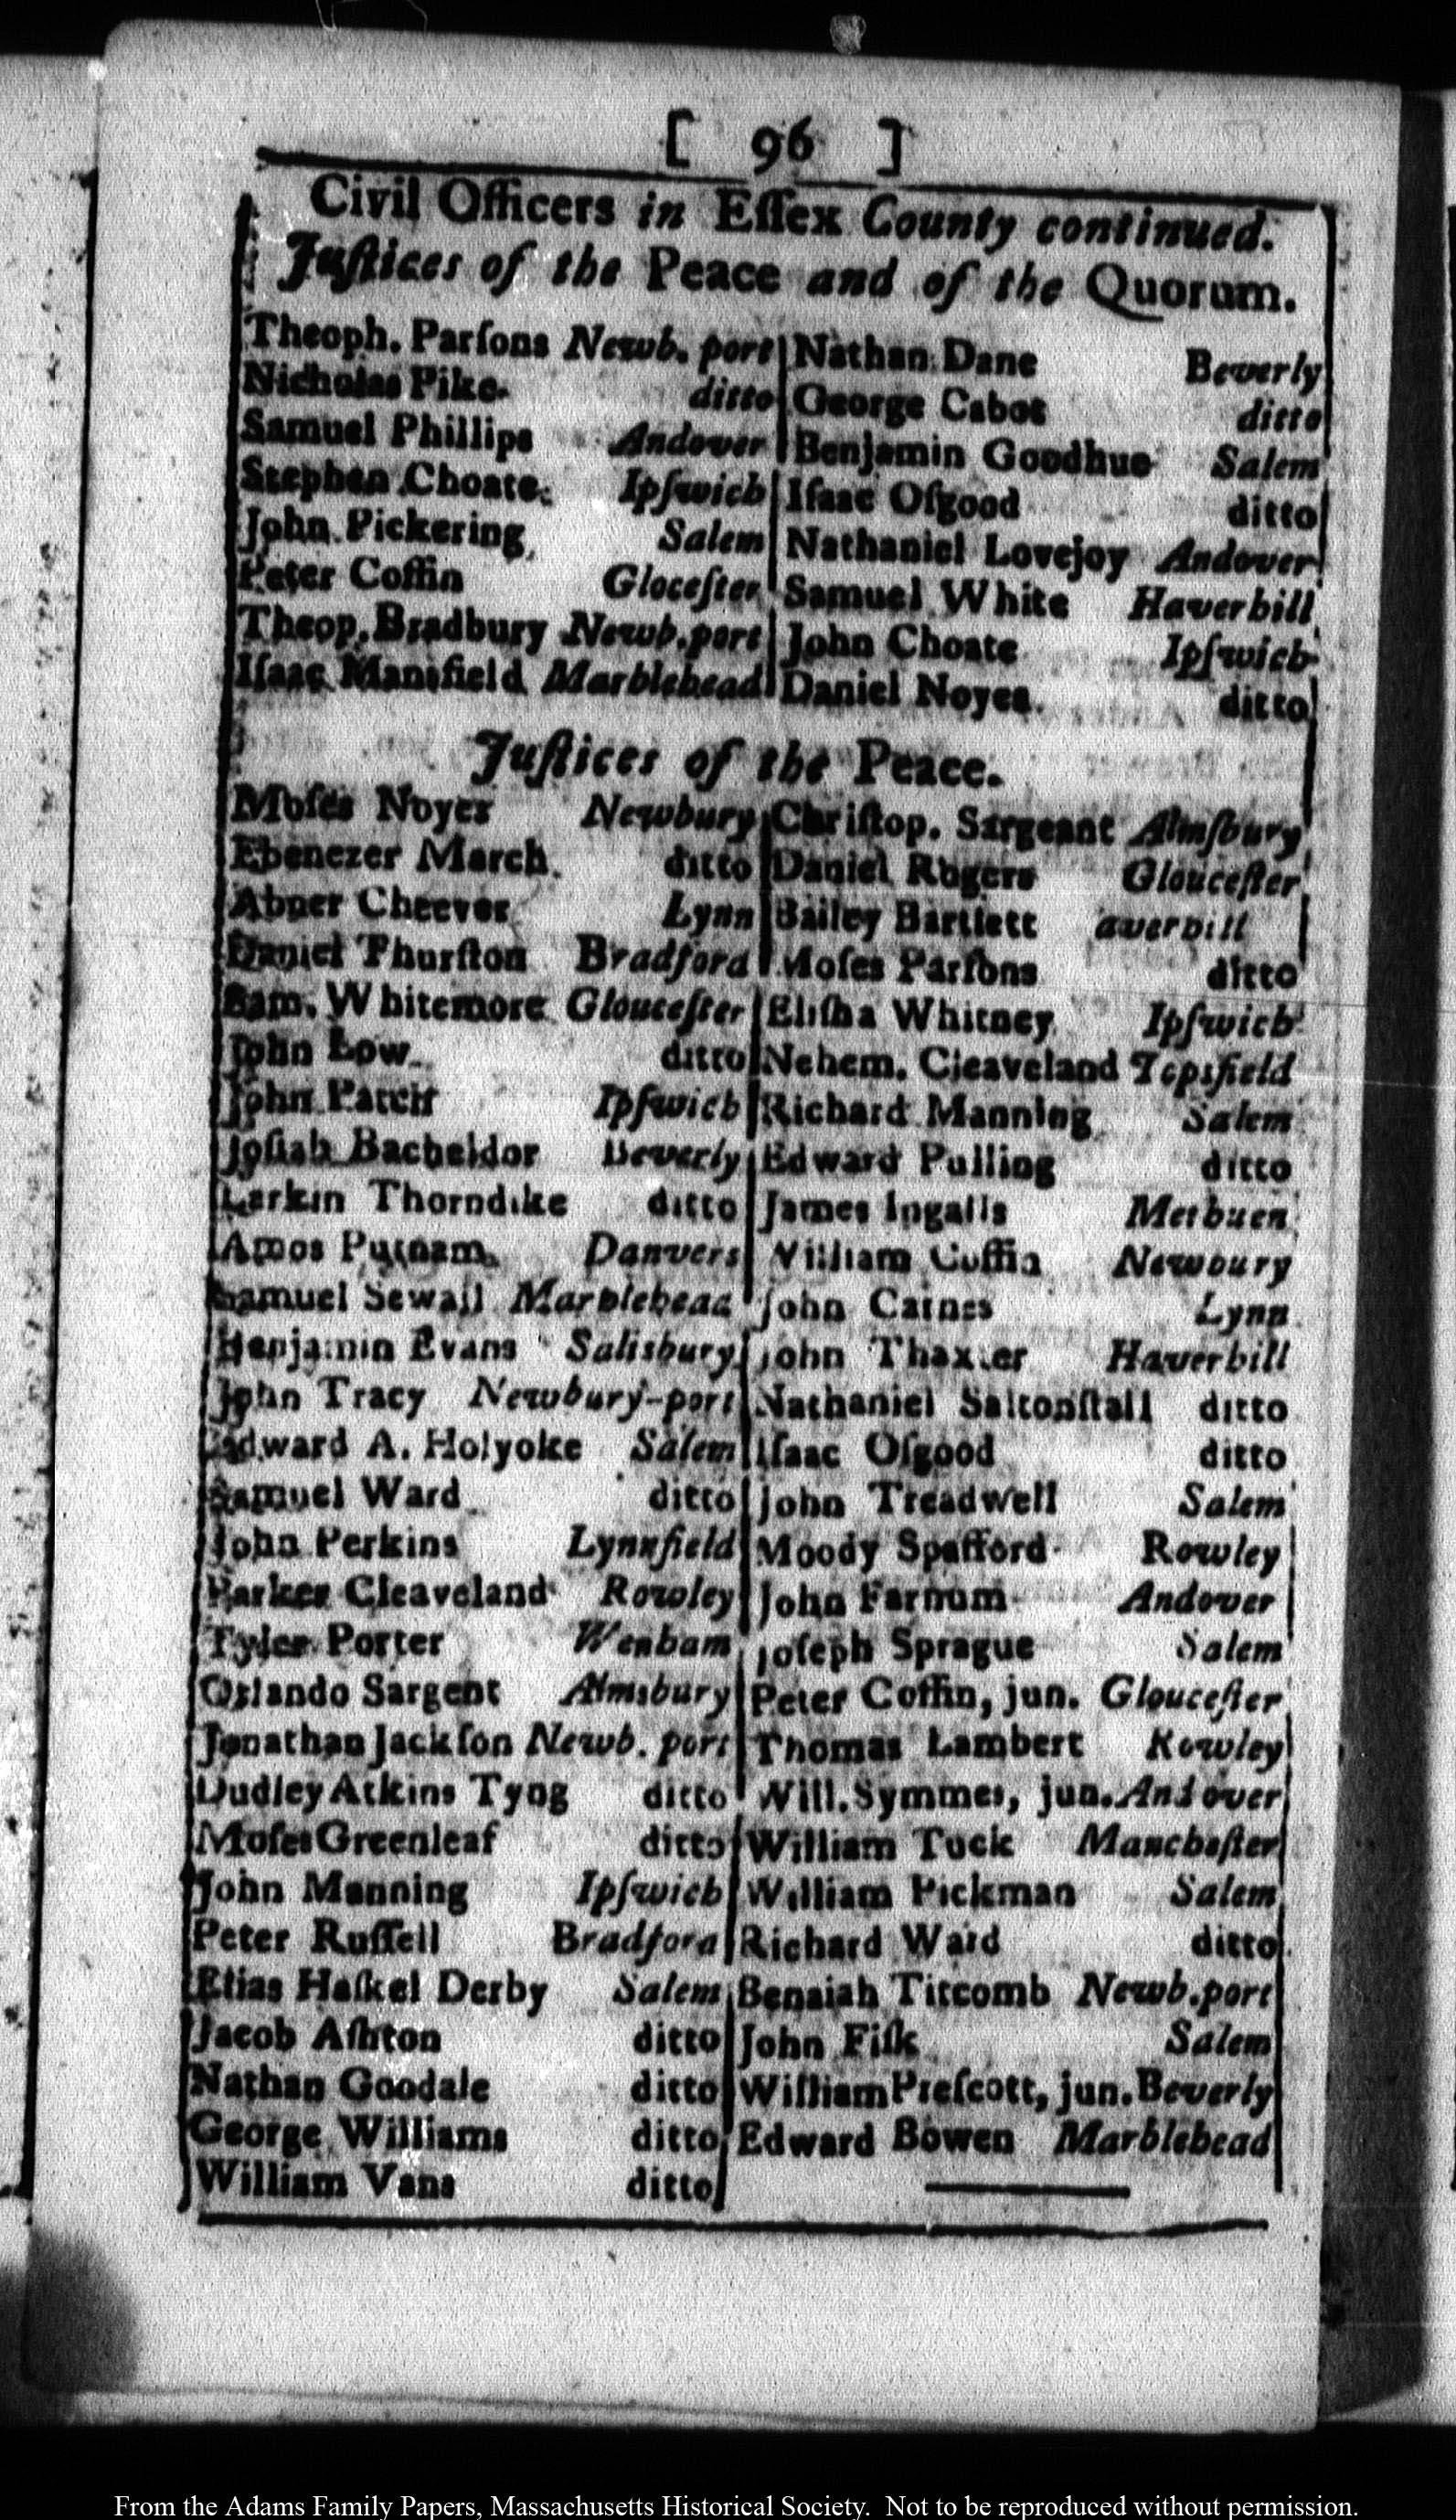 [ 96 ]
Civil Officers in Eſſex County continued.
Juſtices of the Peace and of the Quorum.
Theoph. Parſons Newb. port
Nicholas Pike ditto
Samuel Phillips Andover
Stephen Choate Ipſwich
John Pickering Salem
Peter Coffin Gloceſter
Theop. Bradbury Newb.port
Iſaac Mansfield Marblehead
Nathan Dane Beverly
George Cabot ditto
Benjamin Goodhue Salem
Iſaac Oſgood ditto
Nathaniel Lovejoy Andover
Samuel White Haverhill
John Choate Ipſwich
Daniel Noyes ditto
Juſtices of the Peace.
Moſes Noyes Newbury
Ebenezer March ditto
Abner Cheever Lynn
Daniel Thurſton Bradford
Sam. Whitemore Glouceſter
John Low ditto
John Patch Ipſwich
Joſiah Bacheldor Beverly
Larkin Thorndike ditto
Amos Putnam Danvers
Samuel Sewall Marblehead
Benjamin Evans Salisbury
John Tracy Newbury-port
Edward A. Holyoke Salem
Samuel Ward ditto
John Perkins Lynnfield
Parker Cleaveland Rowley
Tyler Porter Wenham
Orlando Sargent Almsbury
Jonathan Jackſon Newb. port
Dudley Atkins Tyng ditto
Moſes Greenleaf ditto
John Manning Ipſwich
Peter Ruſſell Bradford
Elias Haſkel Derby Salem
Jacob Aſhton ditto
Nathan Goodale ditto
George Williams ditto
William Vans ditto
Chriſtop. Sargeant Almſbury
Daniel Rogers Glouceſter
Bailey Bartlett averhill
Moſes Parſons ditto
Eliſha Whitney Ipſwich
Nehem. Cleaveland Topsfield
Richard Manning Salem
Edward Pulling ditto
James Ingalls Methuen
William Coffin Newbury
John Carnes Lynn
John Thaxter Haverhill
Nathaniel Saltonſtall ditto
Iſaac Oſgood ditto
John Treadwell Salem
Moody Spafford Rowley
John Farnum Andover
Joſeph Sprague Salem
Peter Coffin, jun. Glouceſter
Thomas Lambert Rowley
Will. Symmes, jun. Andover
William Tuck Mancheſter
William Pickman Salem
Richard Ward ditto
Benaiah Titcomb Newb.port
John Fiſk Salem
William Preſcott, jun. Beverly
Edward Bowen Marblehead
From the Adams Family Papers, Massachusetts Historical Society. Not to be reproduced without permission.